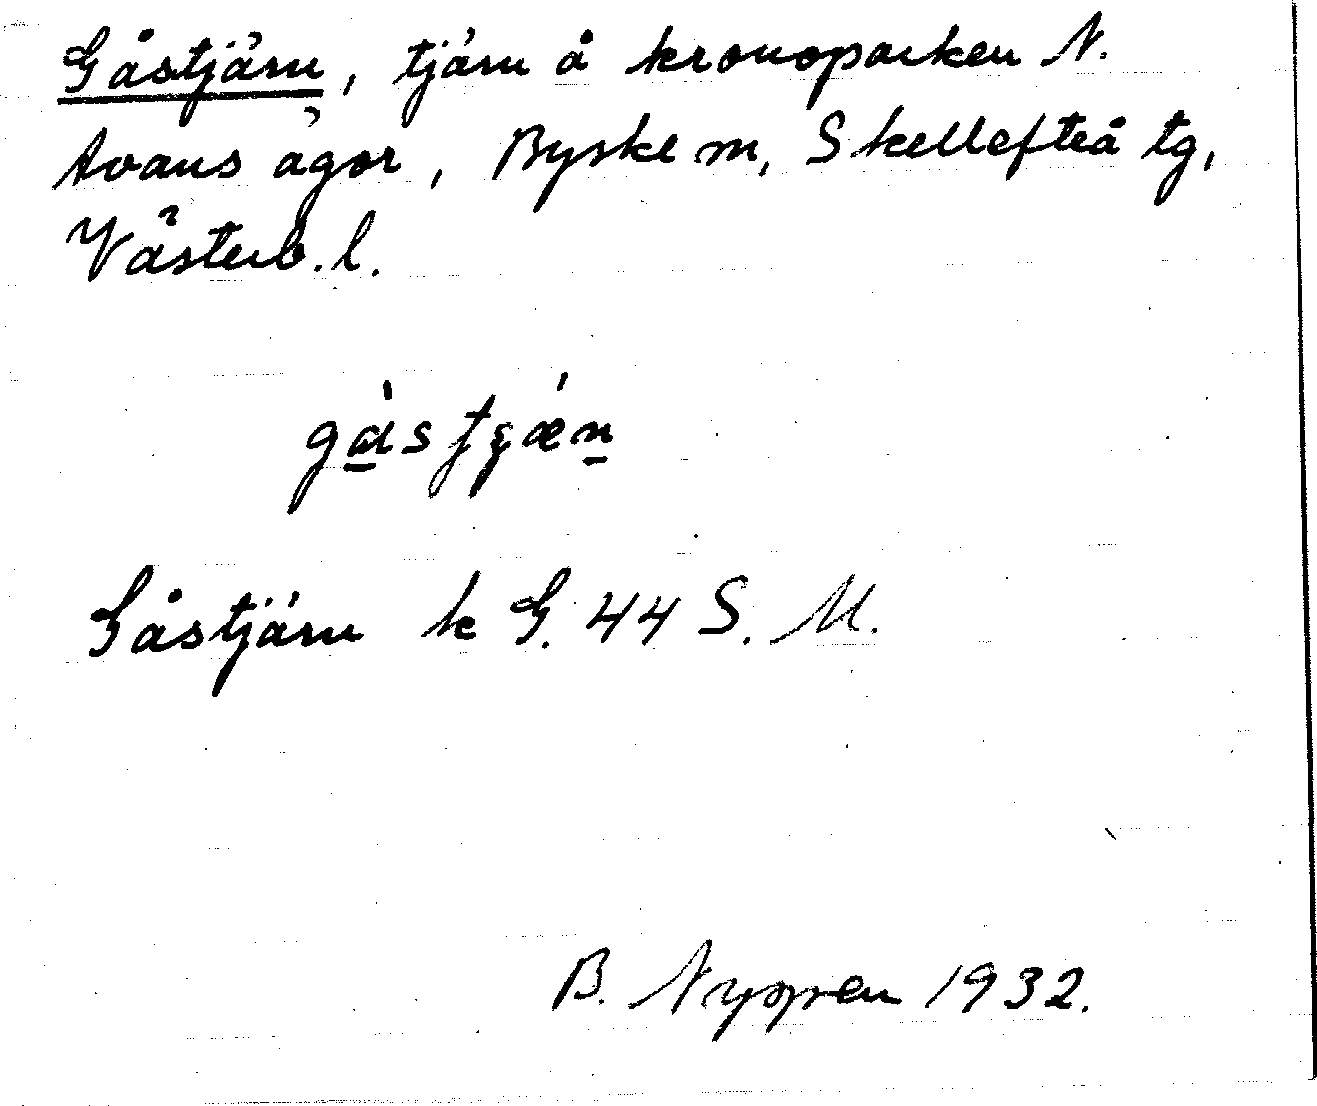 Gåstjärn, tjärn å kronoparken N.
Avans ägor, Byske m, Skellefteå tg,
Västerb.l.
Gåstjärn k G. 44 S. M.
B. Nygren 1932.